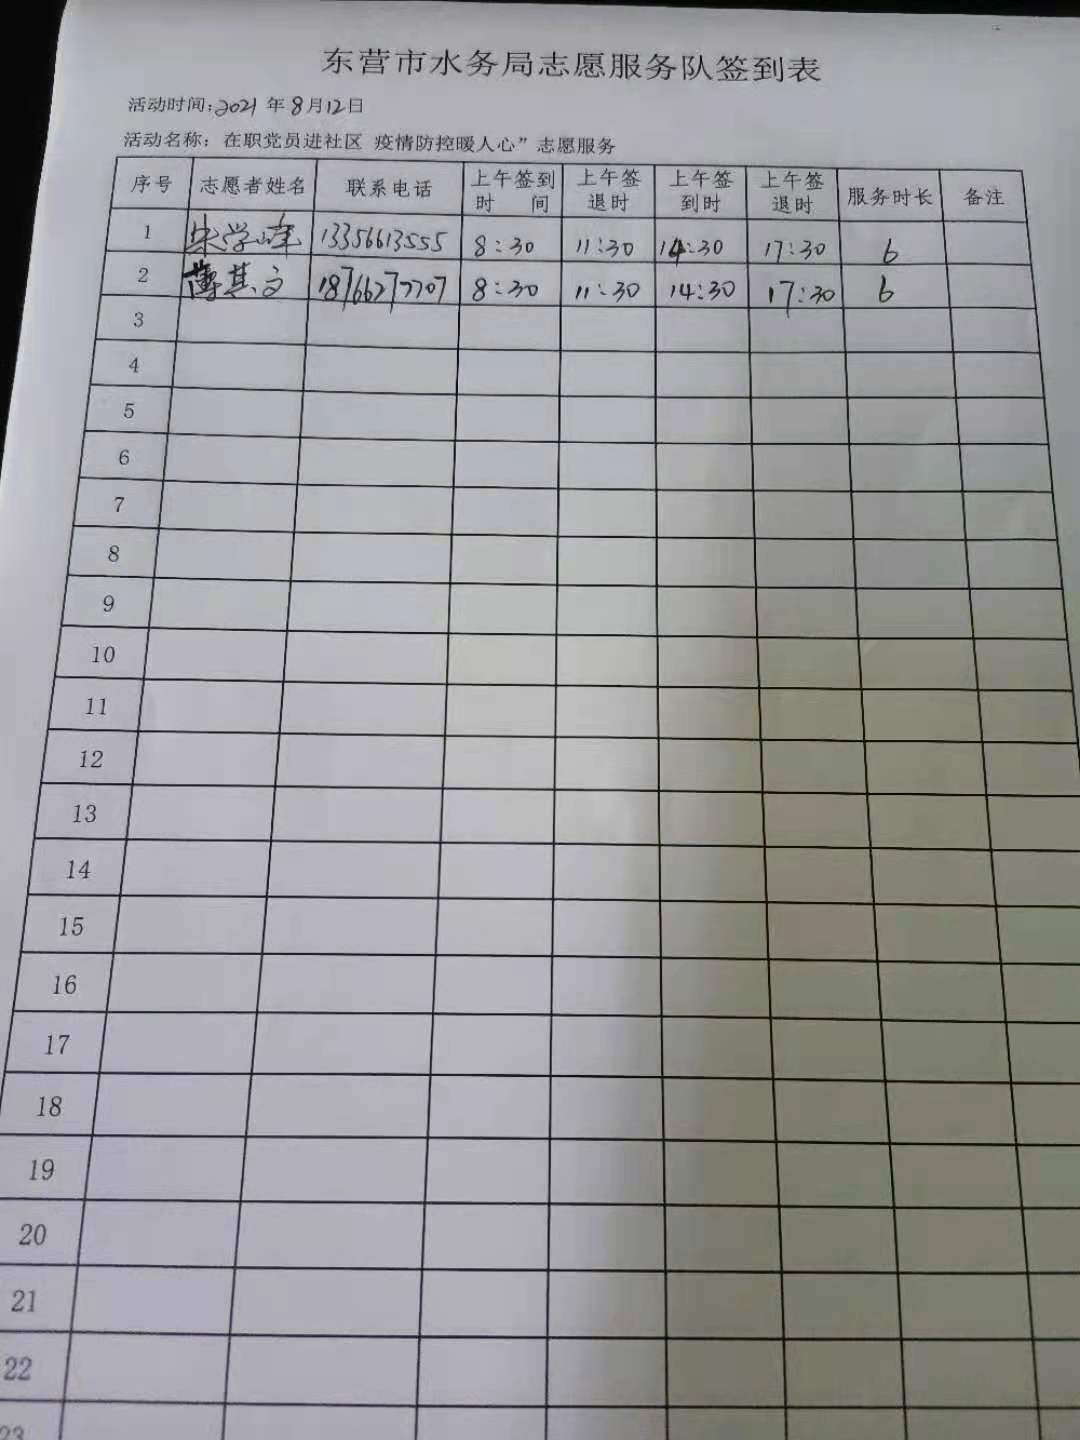 东营市水务局志愿服务队签到表
活动时间：2021 年 8 月 12 日
活动名称：在职党员进社区 疫情防控暖人心”志愿服务
序号 志愿者姓名 联系电话 上午签到时 间 上午签退时 上午签到时 上午签退时 服务时长 备注
1 宋学峰 13356613555 8:30 11:30 14:30 17:30 6
2 薄其文 18766277707 8:30 11:30 14:30 17:30 6
3
4
5
6
7
8
9
10
11
12
13
14
15
16
17
18
19
20
21
22
23